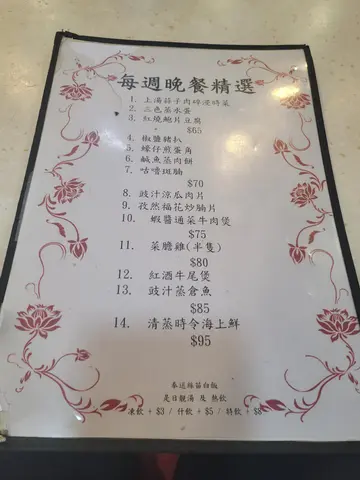 每週晚餐精選
1. 上湯蒜子肉碎浸時菜
2. 三色蒸水蛋
3. 紅燒鮑片豆腐
$65
4. 椒鹽豬扒
5. 蠔仔煎蛋角
6. 鹹魚蒸肉餅
7. 咕嚕斑腩
$70
8. 豉汁涼瓜肉片
9. 孜然福花炒腩片
10. 蝦醬通菜牛肉煲
$75
11. 菜膽雞(半隻)
$80
12. 紅酒牛尾煲
13. 豉汁蒸倉魚
$85
14. 清蒸時令海上鮮
$95
奉送絲苗白飯
是日靚湯 及 熱飲
凍飲 + $3 / 什飲 + $5 / 特飲 + $8